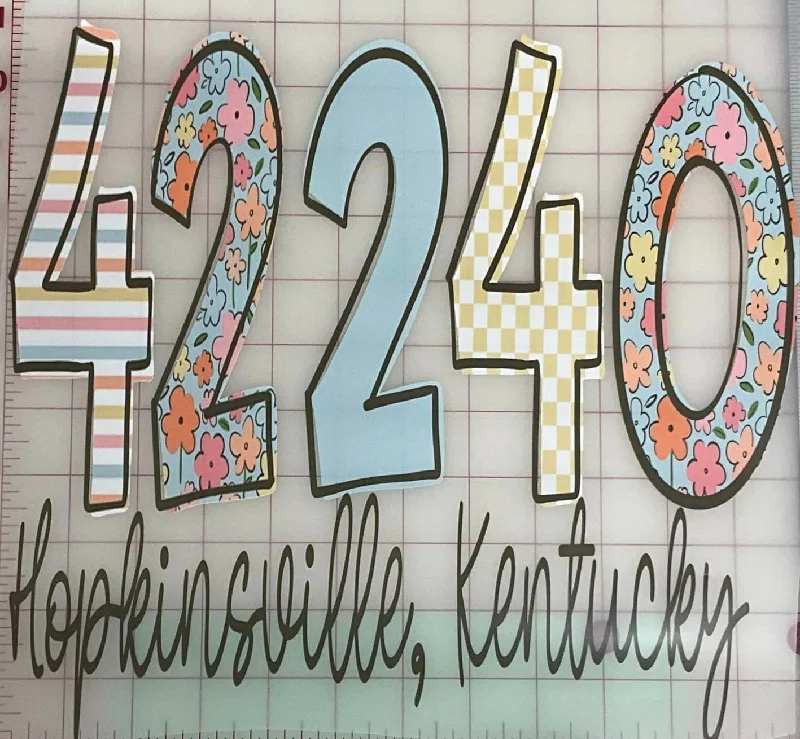 42240
Hopkinsville, Kentucky